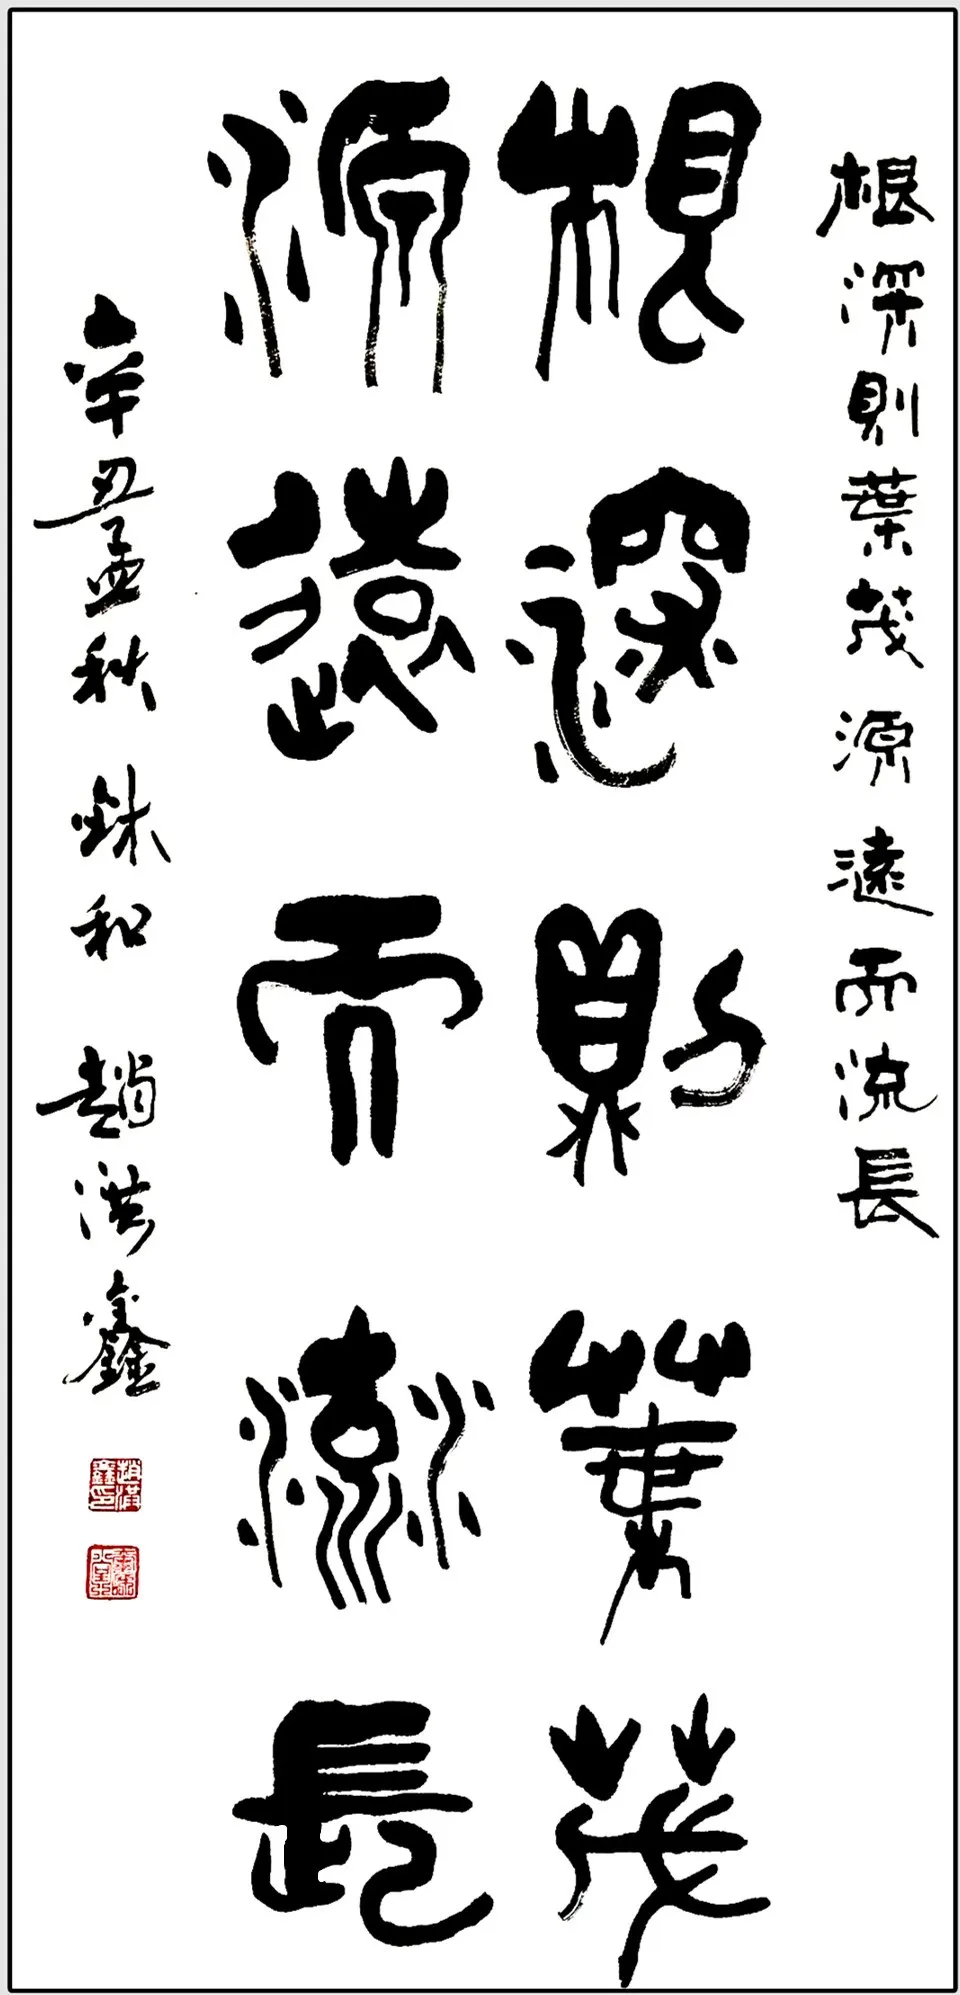 根深則葉茂源遠而流長
根深則葉茂
源遠而流長
辛丑孟秋 和 趙洪鑫
趙洪鑫印